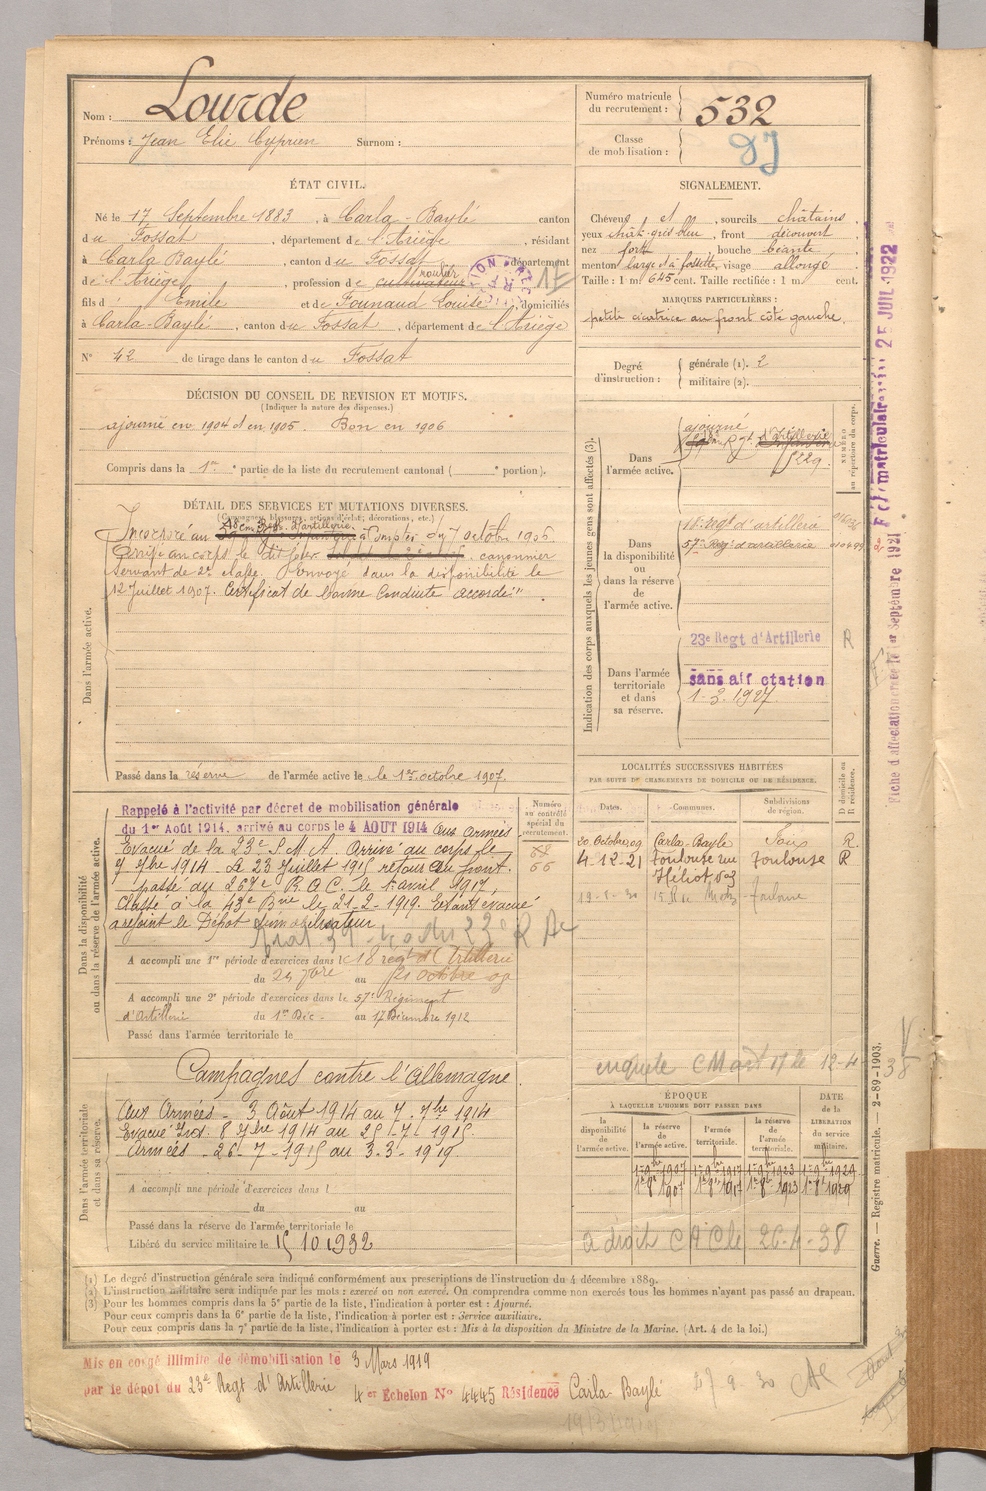 Nom : Lourde
Prénoms : Jean Elie Cyprien Surnom :
Numéro matricule du recrutement : 532
Classe de mobilisation :
ÉTAT CIVIL.
Né le 17 Septembre 1883, à Carla-Baylé canton
du Fossat, département de l'Ariège, résidant
à Carla Baylé, canton du Fossat, département
de l'Ariège, profession de cultivateur
fils d' Emile et de Founaud Louise domiciliés
à Carla-Baylé, canton du Fossat, département de l'Ariège
N° 42 de tirage dans le canton du Fossat
SIGNALEMENT.
Cheveux et, sourcils châtains
yeux chât-gris bleu, front découvert
nez fort, bouche béante
menton large à fossette, visage allongé
Taille : 1 m 645 cent. Taille rectifiée : 1 m cent.
MARQUES PARTICULIÈRES :
petite cicatrice au front côté gauche.
Degré d'instruction : générale (1). 2
militaire (2).
DÉCISION DU CONSEIL DE REVISION ET MOTIFS.
(Indiquer la nature des dispenses.)
ajourné en 1904 et en 1905. Bon en 1906
Compris dans la 1re partie de la liste du recrutement cantonal ( portion).
DÉTAIL DES SERVICES ET MUTATIONS DIVERSES.
(Campagnes, blessures, actions d'éclat, décorations, etc.)
18e Rég. d'artillerie
Incorporé au à compter du 7 octobre 1906
Arrivé au corps le dit jour canonnier
servant de 2e classe. Renvoyé dans la disponibilité le
12 Juillet 1907. Certificat de bonne conduite "accordé"
Dans l'armée active.
Passé dans la réserve de l'armée active le le 1er octobre 1907.
Indication des corps auxquels les jeunes gens sont affectés (3).
NUMÉRO au répertoire du corps.
Dans l'armée active.
ajourné
d'artillerie
5229.
Dans la disponibilité ou dans la réserve de l'armée active.
18e regt d'artillerie
57e Regt d'artillerie
Dans l'armée territoriale et dans sa réserve.
23e Regt d'Artillerie R
sans aff ctation
1-3-1927.
Fiche d'affectation créée le 1er Septembre 1921
matriculaire 25 JUIL 1922
Dans la disponibilité ou dans la réserve de l'armée active.
Rappelé à l'activité par décret de mobilisation générale
du 1er Août 1914. arrivé au corps le 4 AOUT 1914 Aux Armées
Evacué de la 23e S.M.A. Arrivé au corps le
7 7bre 1914. Le 23 Juillet 1915 retour au front.
passé au 267e R.A.C. le 1 avril 1917,
classé à la 43e Bie le 21-2-1919. Etant évacué
a rejoint le Dépôt démobilisateur
A accompli une 1re période d'exercices dans le 18 régt d'Artillerie
du 29 7bre au 21 octobre 09
A accompli une 2e période d'exercices dans le 57e Régiment
d'Artillerie du 1er Déc. au 17 Décembre 1912
Passé dans l'armée territoriale le
Numéro au contrôle spécial du recrutement.
66
LOCALITÉS SUCCESSIVES HABITÉES
PAR SUITE DE CHANGEMENTS DE DOMICILE OU DE RÉSIDENCE.
Dates. Communes. Subdivisions de région. D domicile ou R résidence.
20 Octobre 09 Carla-Bayle Foix R.
4.12.21 Toulouse rue Héliot 23 Toulouse R
Toulouse
enquete 12-4-38
Dans l'armée territoriale et dans sa réserve.
Campagnes contre l'Allemagne.
Aux Armées - 3 Août 1914 au 7-7bre 1914
Evacué Int. 8 7bre 1914 au 25-7-1915.
Armées - 26-7-1915 au 3-3-1919
A accompli une période d'exercices dans l
du au
Passé dans la réserve de l'armée territoriale le
Libéré du service militaire le 15 10 1932
ÉPOQUE
À LAQUELLE L'HOMME DOIT PASSER DANS
DATE de la LIBÉRATION du service militaire.
la disponibilité de l'armée active. la réserve de l'armée active. l'armée territoriale. la réserve de l'armée territoriale.
1er 9bre 1907 1er 9bre 1917 1er 9bre 1923 1er 9bre 1929
1er 8bre 1907 1er 8bre 1917 1er 8bre 1923 1er 8bre 1929
a droit 26-4-38
(1) Le degré d'instruction générale sera indiqué conformément aux prescriptions de l'instruction du 4 décembre 1889.
(2) L'instruction militaire sera indiquée par les mots : exercé ou non exercé. On comprendra comme non exercés tous les hommes n'ayant pas passé au drapeau.
(3) Pour les hommes compris dans la 5e partie de la liste, l'indication à porter est : Ajourné.
Pour ceux compris dans la 6e partie de la liste, l'indication à porter est : Service auxiliaire.
Pour ceux compris dans la 7e partie de la liste, l'indication à porter est : Mis à la disposition du Ministre de la Marine. (Art. 4 de la loi.)
Guerre. — Registre matricule. 2-89-1903.
Mis en congé illimité de démobilisation le 3 Mars 1919
par le dépôt du 23e Regt d'Artillerie 4er Echelon N° 4445 Résidence Carla-Baylé